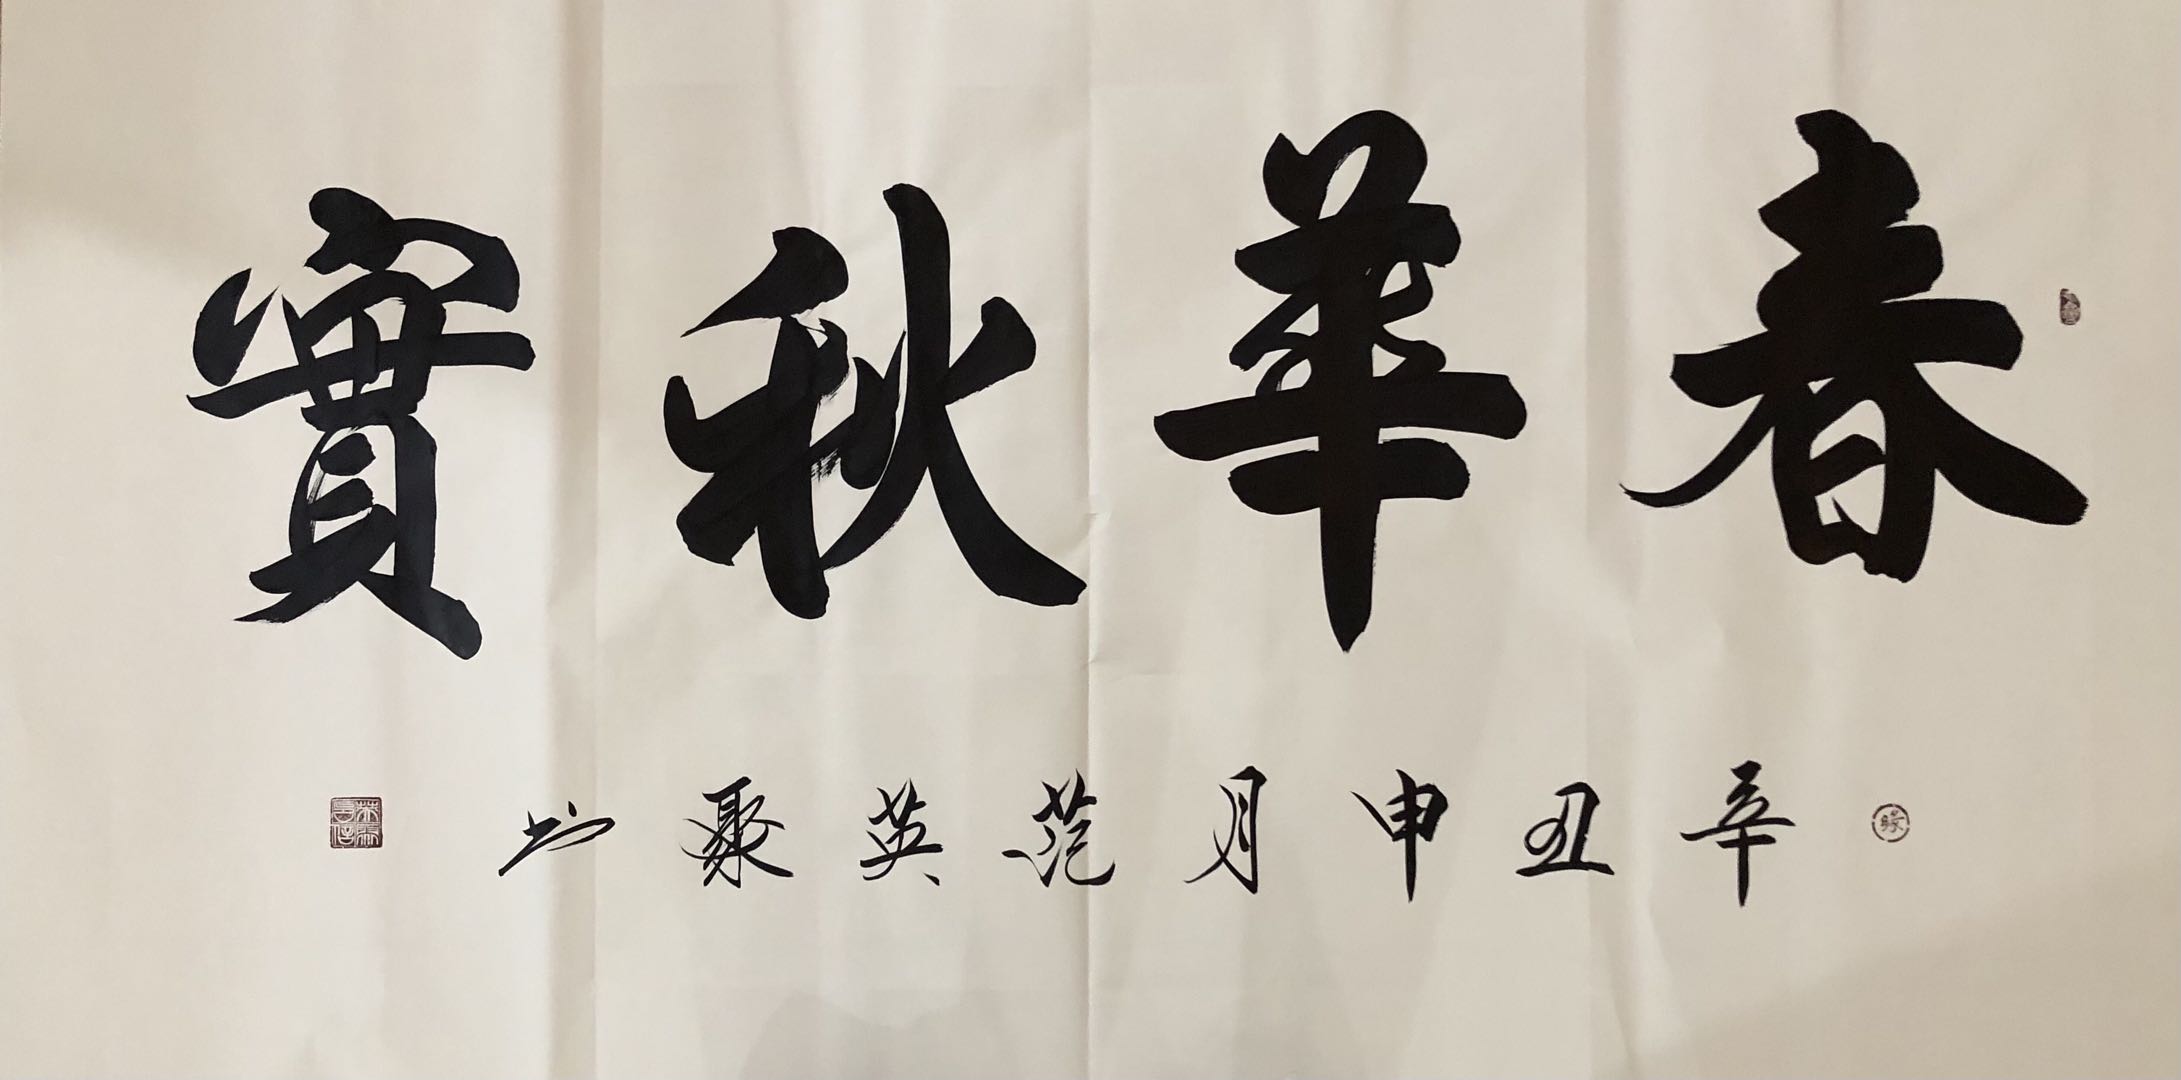 春華秋實
辛丑申月范英聚書